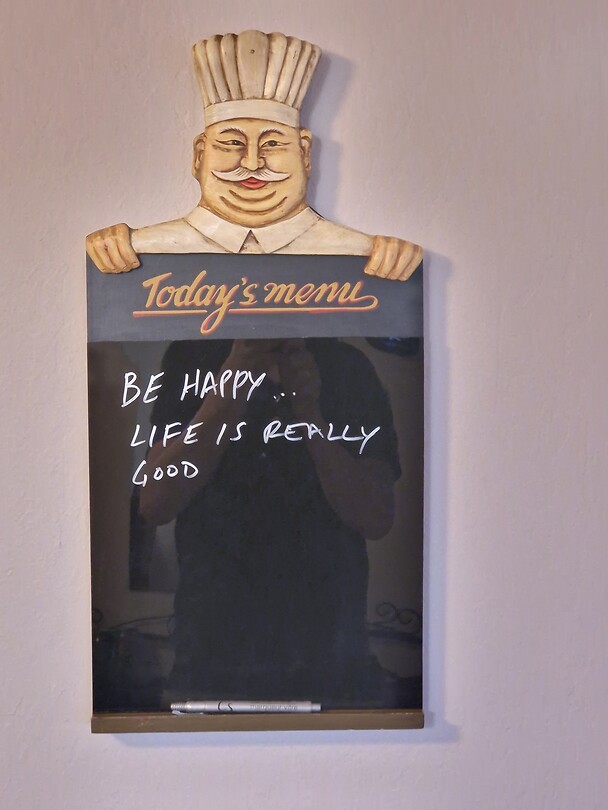 Today's menu
BE HAPPY...
LIFE IS REALLY
GOOD